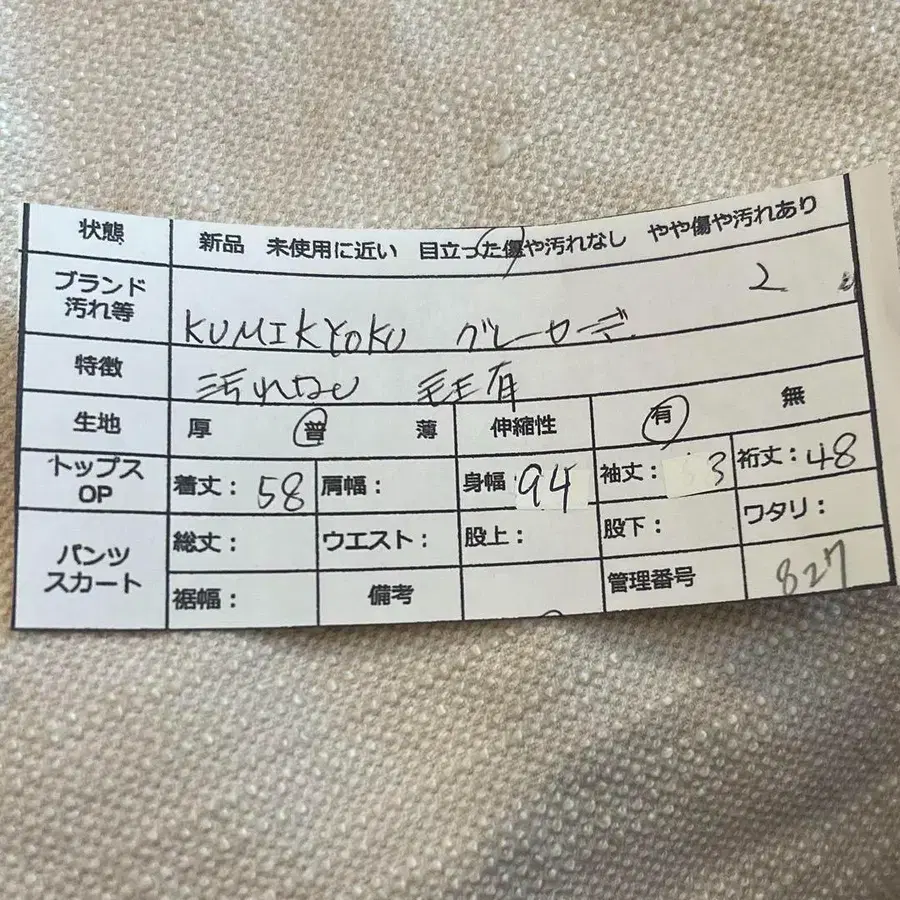 状態 新品 未使用に近い 目立った傷や汚れなし やや傷や汚れあり
ブランド 2
汚れ等 KUMIKYOKU グレーカーデ
特徴 汚れなし 毛玉有
生地 厚 普 薄 伸縮性 有 無
トップス OP 着丈：58 肩幅： 身幅 94 袖丈： 3 裄丈：48
パンツ スカート 総丈： ウエスト： 股上： 股下： ワタリ：
裾幅： 備考 管理番号 827